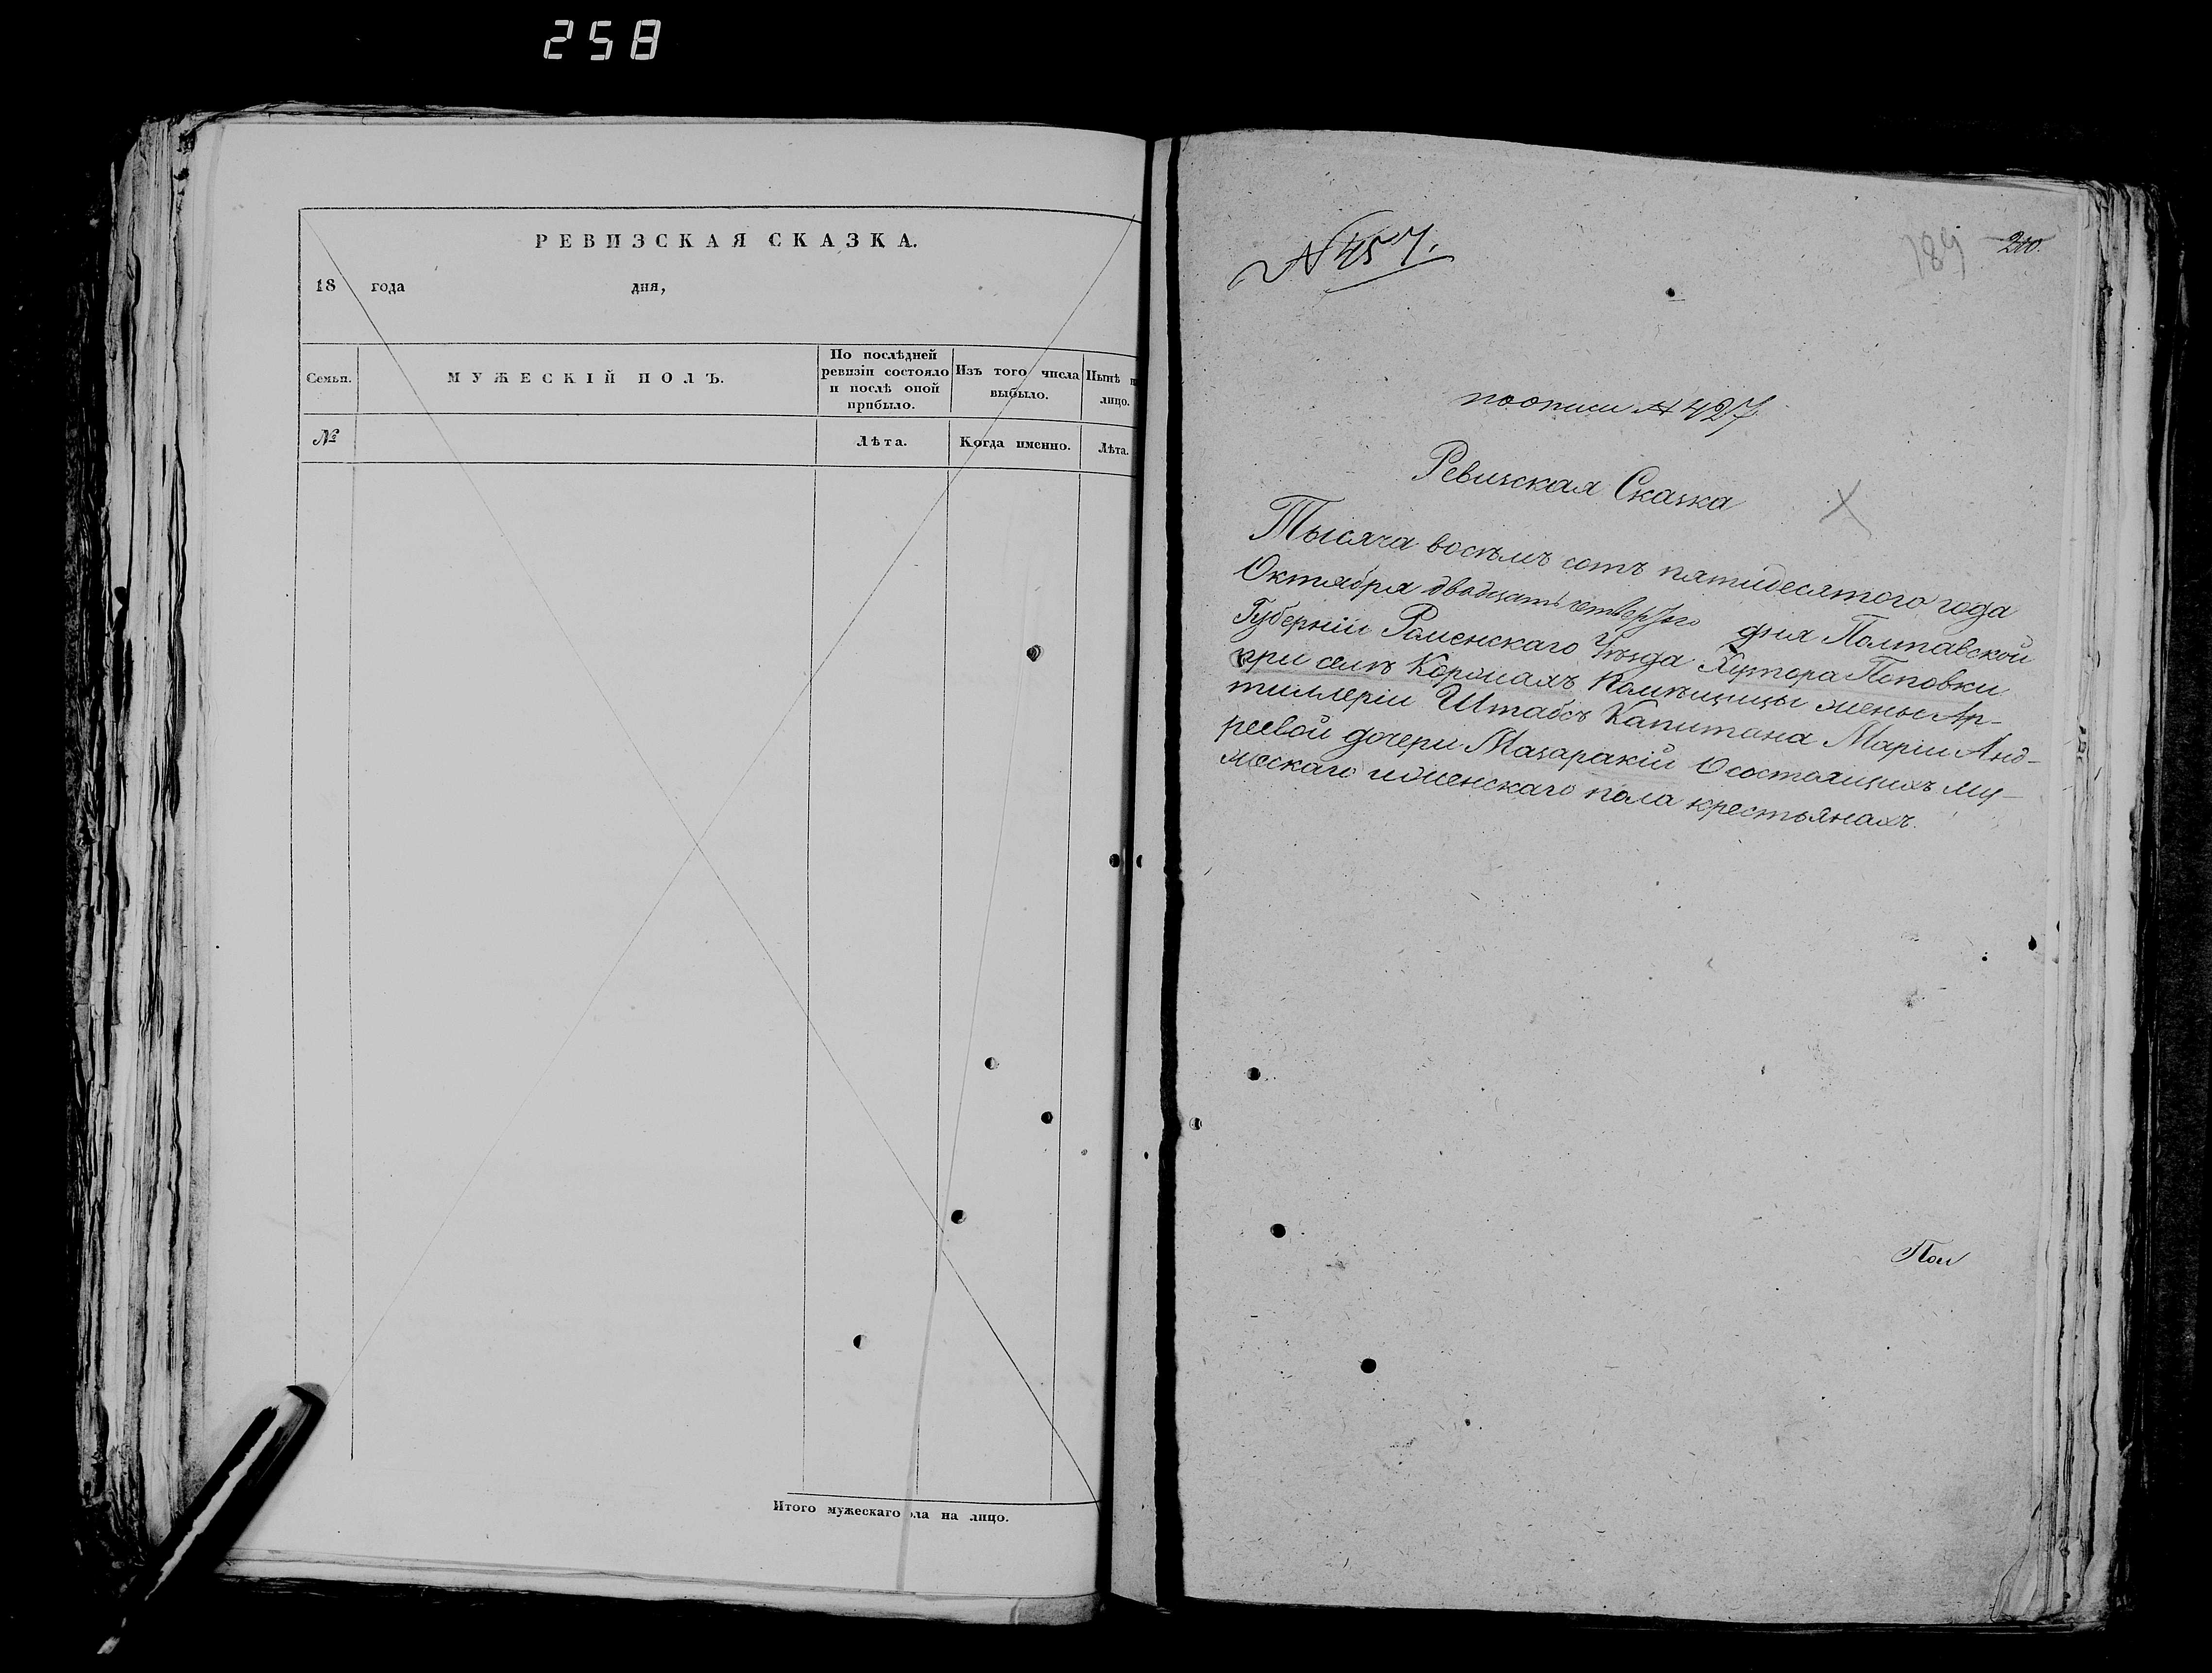 258
РЕВИЗСКАЯ СКАЗКА.
18 года дня,
Семьи.
МУЖЕСКІЙ ПОЛЪ.
По послѣдней
ревизіи состояло
и послѣ оной
прибыло.
Изъ того числа
выбыло.
Нынѣ н
лицо.
№
Лѣта.
Когда именно.
Лѣта.
Итого мужескаго ла на лицо.
№ 457.
189 200.
по описи № 427
Ревизская Сказка
Тысяча восѣмъ сотъ пятидесятого года
Октября двадцать четвертого дня Полтавской
Губерніи Роменскаго Уѣзда Хутора Поповки
при селѣ Коровахъ Помѣщицы жены Ар-
тиллеріи Штабсъ Капитана Маріи Анд-
реевой дочери Мазаракій О состоящихъ му-
жескаго и женскаго пола крестьянахъ.
Пом